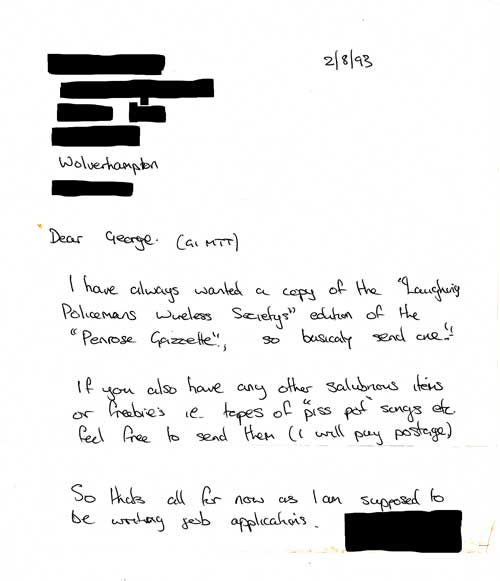 2/8/93
Wolverhampton
Dear George. (G1 MTT)
I have always wanted a copy of the "Laughing
Policemans Wireless Societys" edition of the
"Penrose Gazzette", so basicaly send one!!
If you also have any other salubrious items
or freebie's i.e. tapes of "piss pot" songs etc.
feel free to send them (i will pay postage)
So thats all for now as I am supposed to
be writing job applications.